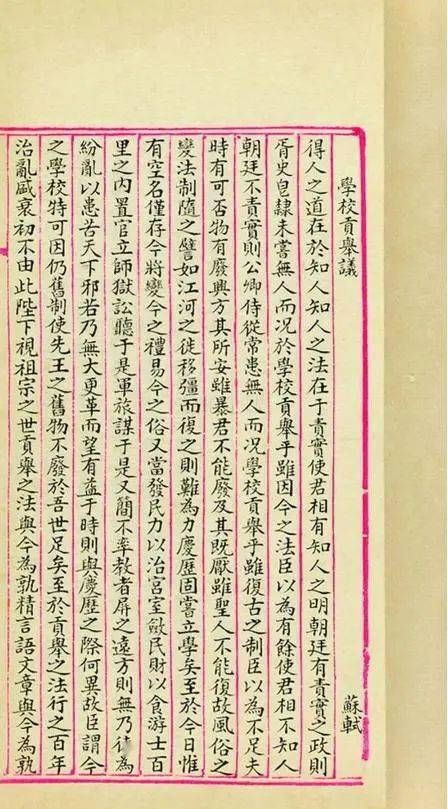 學校貢舉議 蘇軾
得人之道在於知人知人之法在于責實使君相有知人之明朝廷有責實之政則
胥史皂隸未嘗無人而况於學校貢舉乎雖因今之法臣以為有餘使君相不知人
朝廷不責實則公卿侍從常患無人而况學校貢舉乎雖復古之制臣以為不足夫
時有可否物有廢興方其所安雖暴君不能廢及其既厭雖聖人不能復故風俗之
變法制隨之譬如江河之徙移彊而復之則難為力慶歷固嘗立學矣至於今日惟
有空名僅存今將變今之禮易今之俗又當發民力以治宮室斂民財以食游士百
里之內置官立師獄訟聽于是軍旅謀于是又簡不率教者屏之遠方則無乃徒為
紛亂以患苦天下邪若乃無大更革而望有益于時則與慶歷之際何異故臣謂今
之學校特可因仍舊制使先王之舊物不廢於吾世足矣至於貢舉之法行之百年
治亂盛衰初不由此陛下視祖宗之世貢舉之法與今為孰精言語文章與今為孰